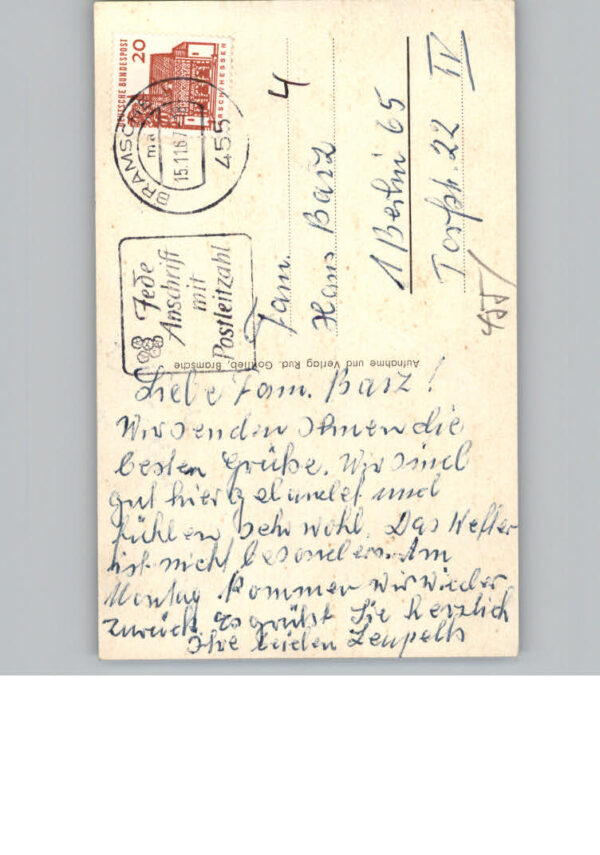 DEUTSCHE BUNDESPOST
20
LORSCH HESSEN
BRAMSCHE
455
15.11.67
Jede
Anschrift
mit
Postleitzahl
4
Fam.
Hans Barz
1 Berlin 65
Torfstr. 22 IV
455
Aufnahme und Verlag Rud. Gottlieb, Bramsche
Liebe Fam. Barz!
Wir senden Ihnen die
besten Grüße. Wir sind
gut hier gelandet und
fühlen sehr wohl. Das Wetter
ist nicht besonders. Am
Montag kommen wir wieder
zurück. Es grüßt Sie herzlich
Ihre beiden